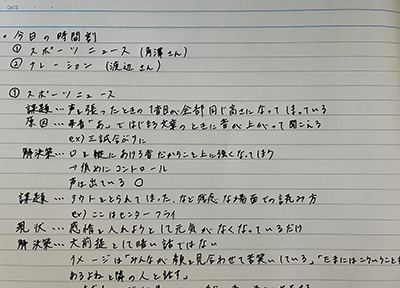 DATE
・今日の時間割
① スポーツニュース (角澤さん)
② ナレーション (渡辺さん)
① スポーツニュース
課題… 声を張ったときの1音目が全部同じ高さになってしまっている
原因… 母音「あ」ではじまる言葉のときに音が上がって聞こえる
ex) 三試合ぶりに
解決策… 口を縦にあける音だからこと上に強くなってしまう
→低めにコントロール
声は出ている ○
課題… アウトをとられてしまった、など残念な場面での読み方
ex) ここはセンターフライ
現状… 感情を入れようとして元気がなくなっているだけ
解決策… 大前提として暗い話ではない
イメージは「みんなが顔を見合わせて苦笑いしている」「たまにはこういうことも
あるよねと隣の人と話す」